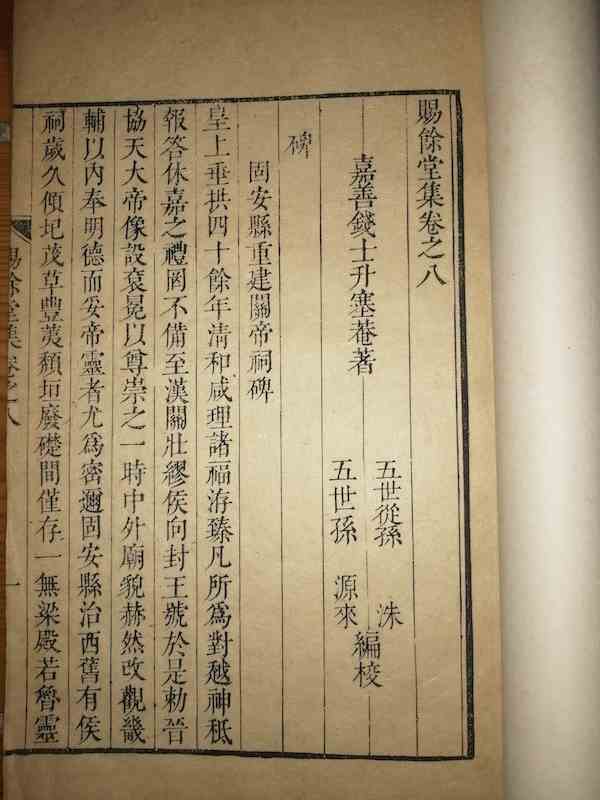 賜餘堂集卷之八
嘉善錢士升塞菴著
五世從孫 洙
五世孫 源來
編校
碑
固安縣重建關帝祠碑
皇上垂拱四十餘年清和咸理諸福洊臻凡所爲對越神秪
報答休嘉之禮罔不備至漢關壯繆侯向封王號於是勅晉
協天大帝像設袞冕以尊崇之一時中外廟貌赫然改觀畿
輔以內奉明德而妥帝靈者尤爲密邇固安縣治西舊有侯
祠歲久傾圮茂草豐荑頽垣廢礎間僅存一無梁殿若魯靈
賜餘堂集卷之八
一